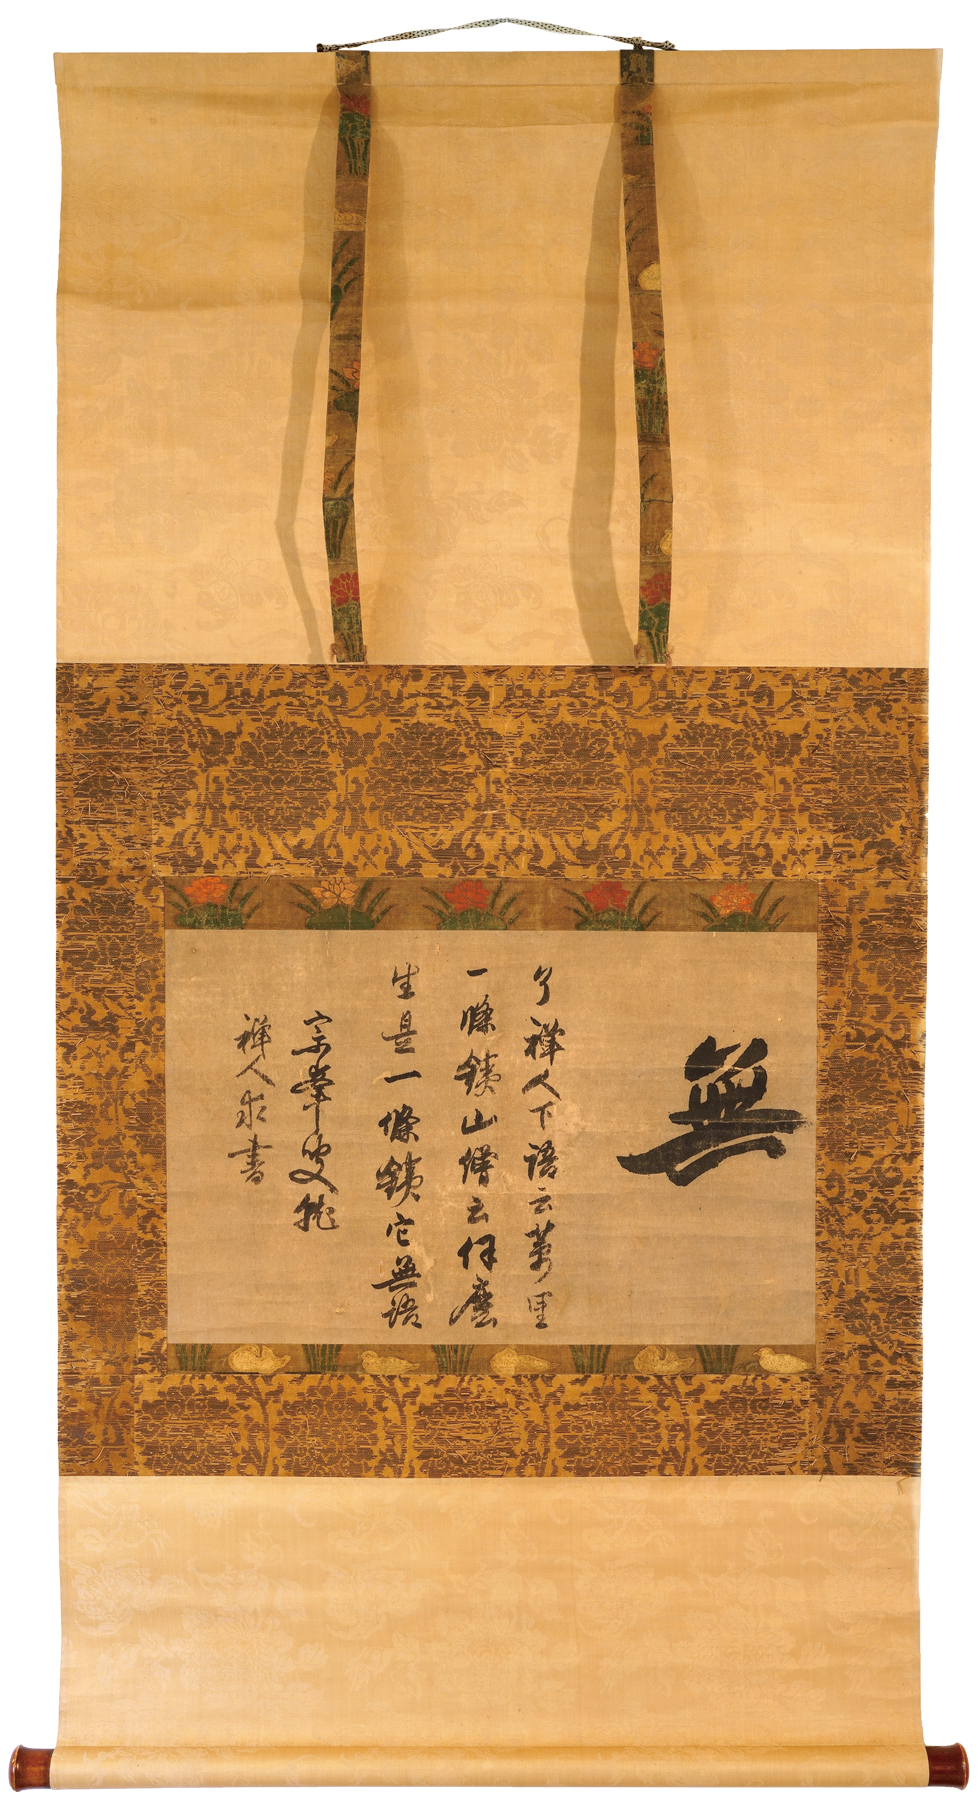 無
了禅人下語云萬里
一條鐵山僧云作麼
生是一條鐵它無語
宗峯叟
禅人求書